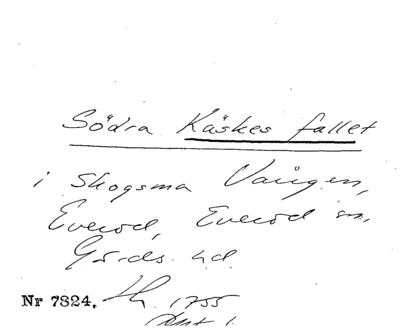 Södra Käskes fallet
i Skogsma Vången,
Everöd, Everöd sn,
Gärds hd.
Nr 7824. 1755